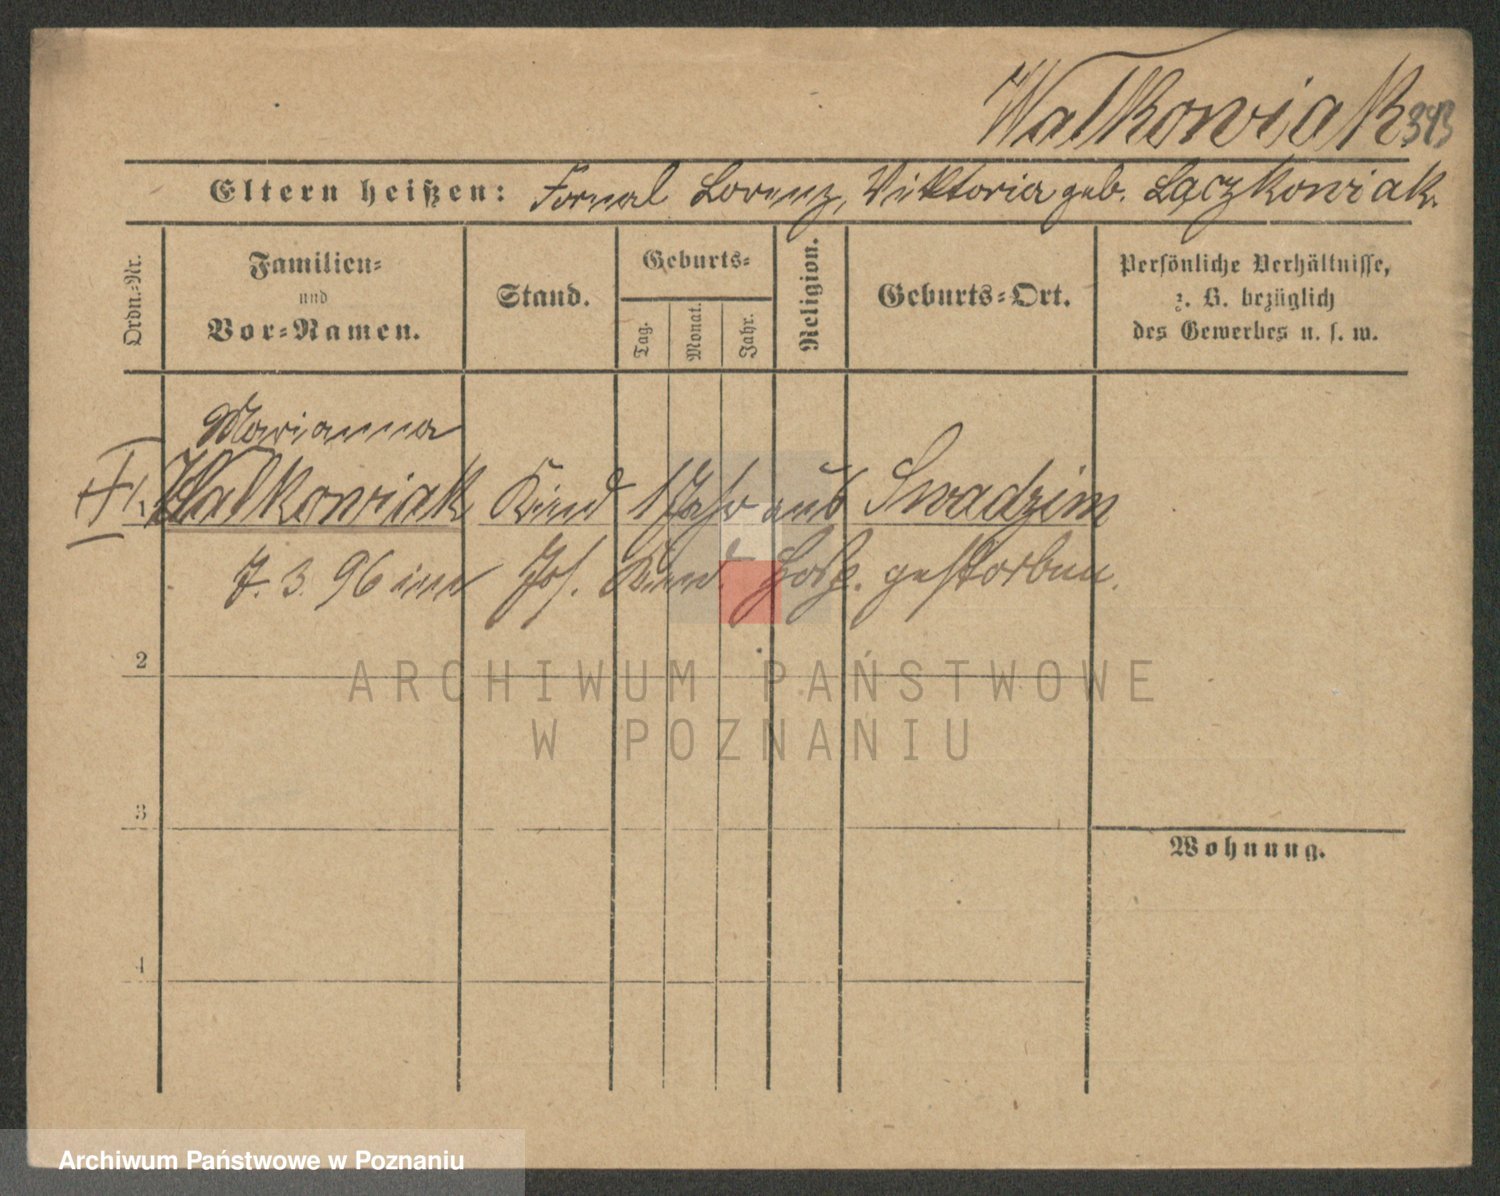 Walkowiak 343
Eltern heißen: Fornal Lorenz, Viktoria geb. Łączkowiak.
Ordn.-Nr.
Familien-
und
Vor-Namen.
Stand.
Geburts-
Tag.
Monat.
Jahr.
Religion.
Geburts-Ort.
Persönliche Verhältnisse,
z. B. bezüglich
des Gewerbes u. s. w.
Marianna
1. Walkowiak Kind 1 Jahr aus Swadzim
7. 3. 96 im Jos. Kind. Hosp. gestorben.
2
ARCHIWUM PAŃSTWOWE
W POZNANIU
3
Wohnung.
4
Archiwum Państwowe w Poznaniu